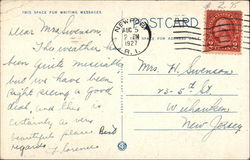 THIS SPACE FOR WRITING MESSAGES.
POSTCARD
Dear Mrs. Swenson,
The weather has
been quite miserable
but we have been
right seeing a good
deal, and this is
certainly as very
beautiful place. Best
regards. Florence
NEWPORT
AUG 5
7 PM
1927
R.I.
Mrs. H. Swenson
53-5th St
Weehawken
New Jersey